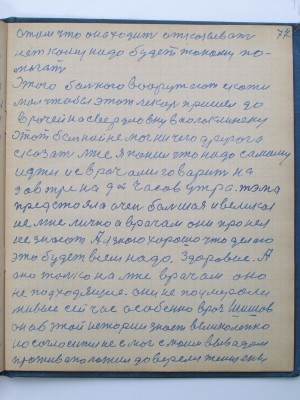 77
о том что она ходит отказывает
нет кому надо будет то кому по-
могать
Этого больного вооружают скажи
мол чтобы этот лекар пришел до
врачей на Свердловску в поликлинику
Этот больной не мог ничего другого
сказат мне я понял что надо самому
идти и с врачами говорит на
завтре на да часов утра. тама
предстояла очен большая и великая
не мне лично а врачам они про нея
не знают А я знаю хорошо что делаю
это будет всем надо. Здоровие. А
оно только на мне врачам оно
не подходящие. они не поумерали
живые сейчас особенно врач Шишов
он об этой истории знает великолепно
но согласится не с мог с моим выводам
против положили доверели женщены